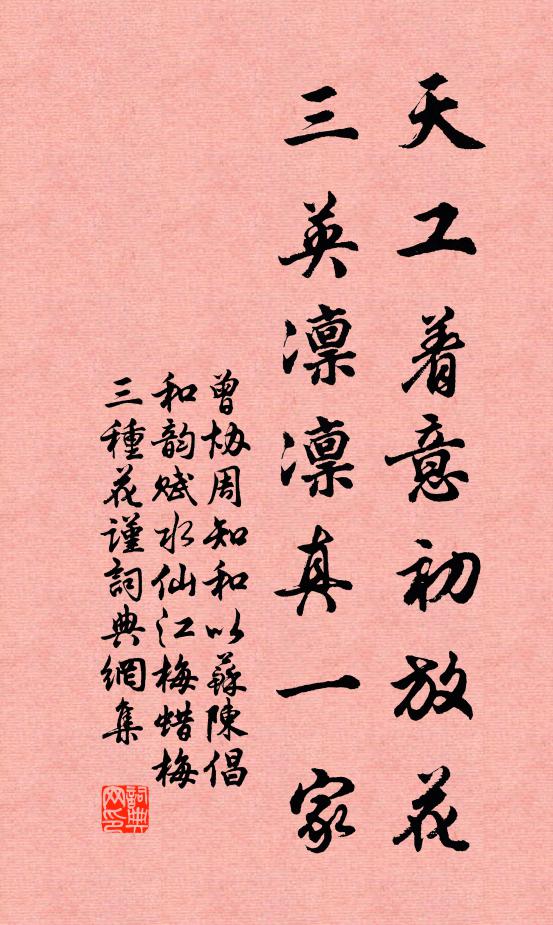 天工着意初放花
三英凛凛真一家
曾协周知和以蘇陳倡
和韵赋水仙江梅蜡梅
三種花谨詞典網集
詞典
网印